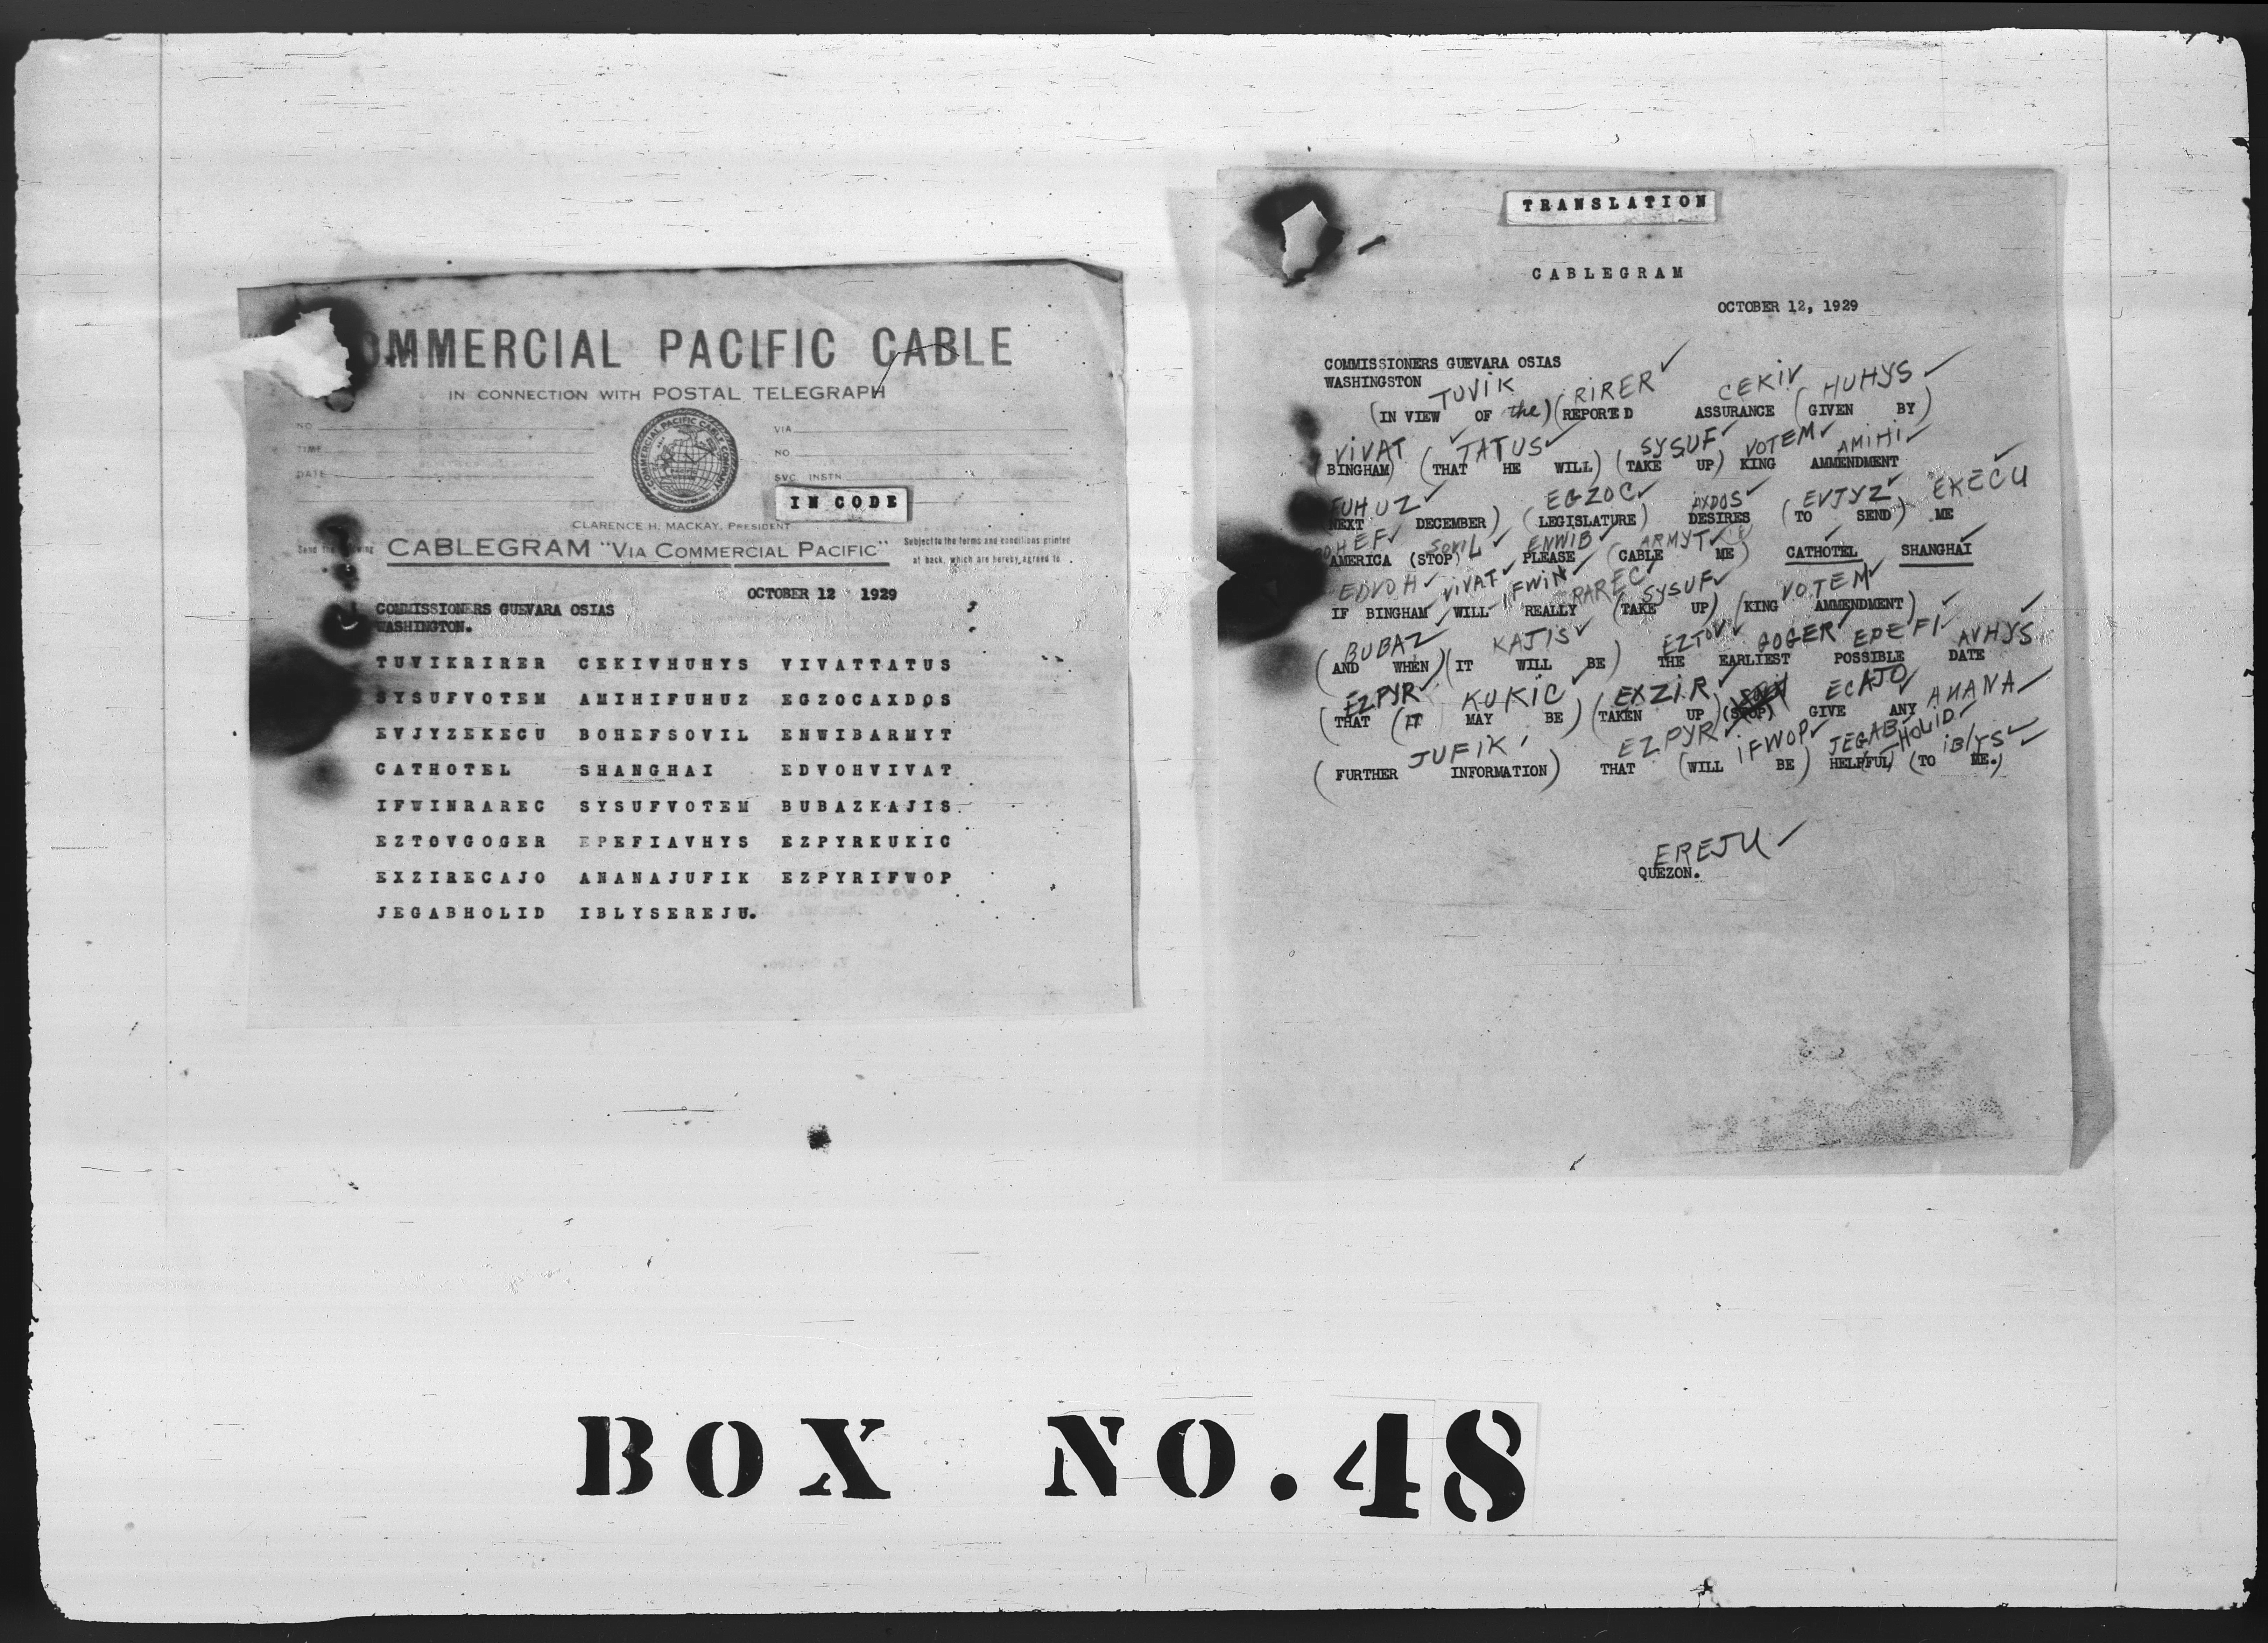 OMMERCIAL PACIFIC CABLE
IN CONNECTION WITH POSTAL TELEGRAPH
NO
TIME
DATE
COMMERCIAL PACIFIC CABLE COMPANY
VIA
NO
SVC INSTN
IN CODE
CLARENCE H. MACKAY, PRESIDENT
Send the following
CABLEGRAM "VIA COMMERCIAL PACIFIC"
Subject to the terms and conditions printed
at back, which are hereby agreed to
OCTOBER 12 1929
COMMISSIONERS GUEVARA OSIAS
WASHINGTON.
TUVIKRIRER CEKIVHUHYS VIVATTATUS
SYSUFVOTEM AMIHIFUHUZ EGZOCAXDOS
EVJYZEKECU BOHEFSOVIL ENWIBARMYT
CATHOTEL SHANGHAI EDVOHVIVAT
IFWINRAREC SYSUFVOTEM BUBAZKAJIS
EZTOVGOGER EPEFIAVHYS EZPYRKUKIC
EXZIRECAJO ANANAJUFIK EZPYRIFWOP
JEGABHOLID IBLYSEREJU.
TRANSLATION
CABLEGRAM
OCTOBER 12, 1929
COMMISSIONERS GUEVARA OSIAS
WASHINGSTON
TUVIK RIRER CEKIV HUHYS
(IN VIEW OF the) (REPORTED ASSURANCE (GIVEN BY)
VIVAT TATUS SYSUF VOTEM AMIHI
BINGHAM) (THAT HE WILL) (TAKE UP) KING AMMENDMENT
FUHUZ EGZOC AXDOS EVJYZ EKECU
NEXT DECEMBER) (LEGISLATURE) DESIRES (TO SEND) ME
BOHEF SOVIL ENWIB ARMYT
AMERICA (STOP) PLEASE (CABLE ME) CATHOTEL SHANGHAI
EDVOH VIVAT IFWIN RAREC SYSUF VOTEM
IF BINGHAM WILL REALLY (TAKE UP) (KING AMMENDMENT)
BUBAZ KAJIS EZTOV GOGER EPEFI AVHYS
(AND WHEN) (IT WILL BE) THE EARLIEST POSSIBLE DATE
EZPYR KUKIC EXZIR ECAJO ANANA
(THAT (IT MAY BE) (TAKEN UP) (STOP) GIVE ANY
JUFIK EZPYR IFWOP JEGAB HOLID IBLYS
(FURTHER INFORMATION) THAT (WILL BE) HELPFUL (TO ME.)
EREJU
QUEZON.
BOX NO. 48